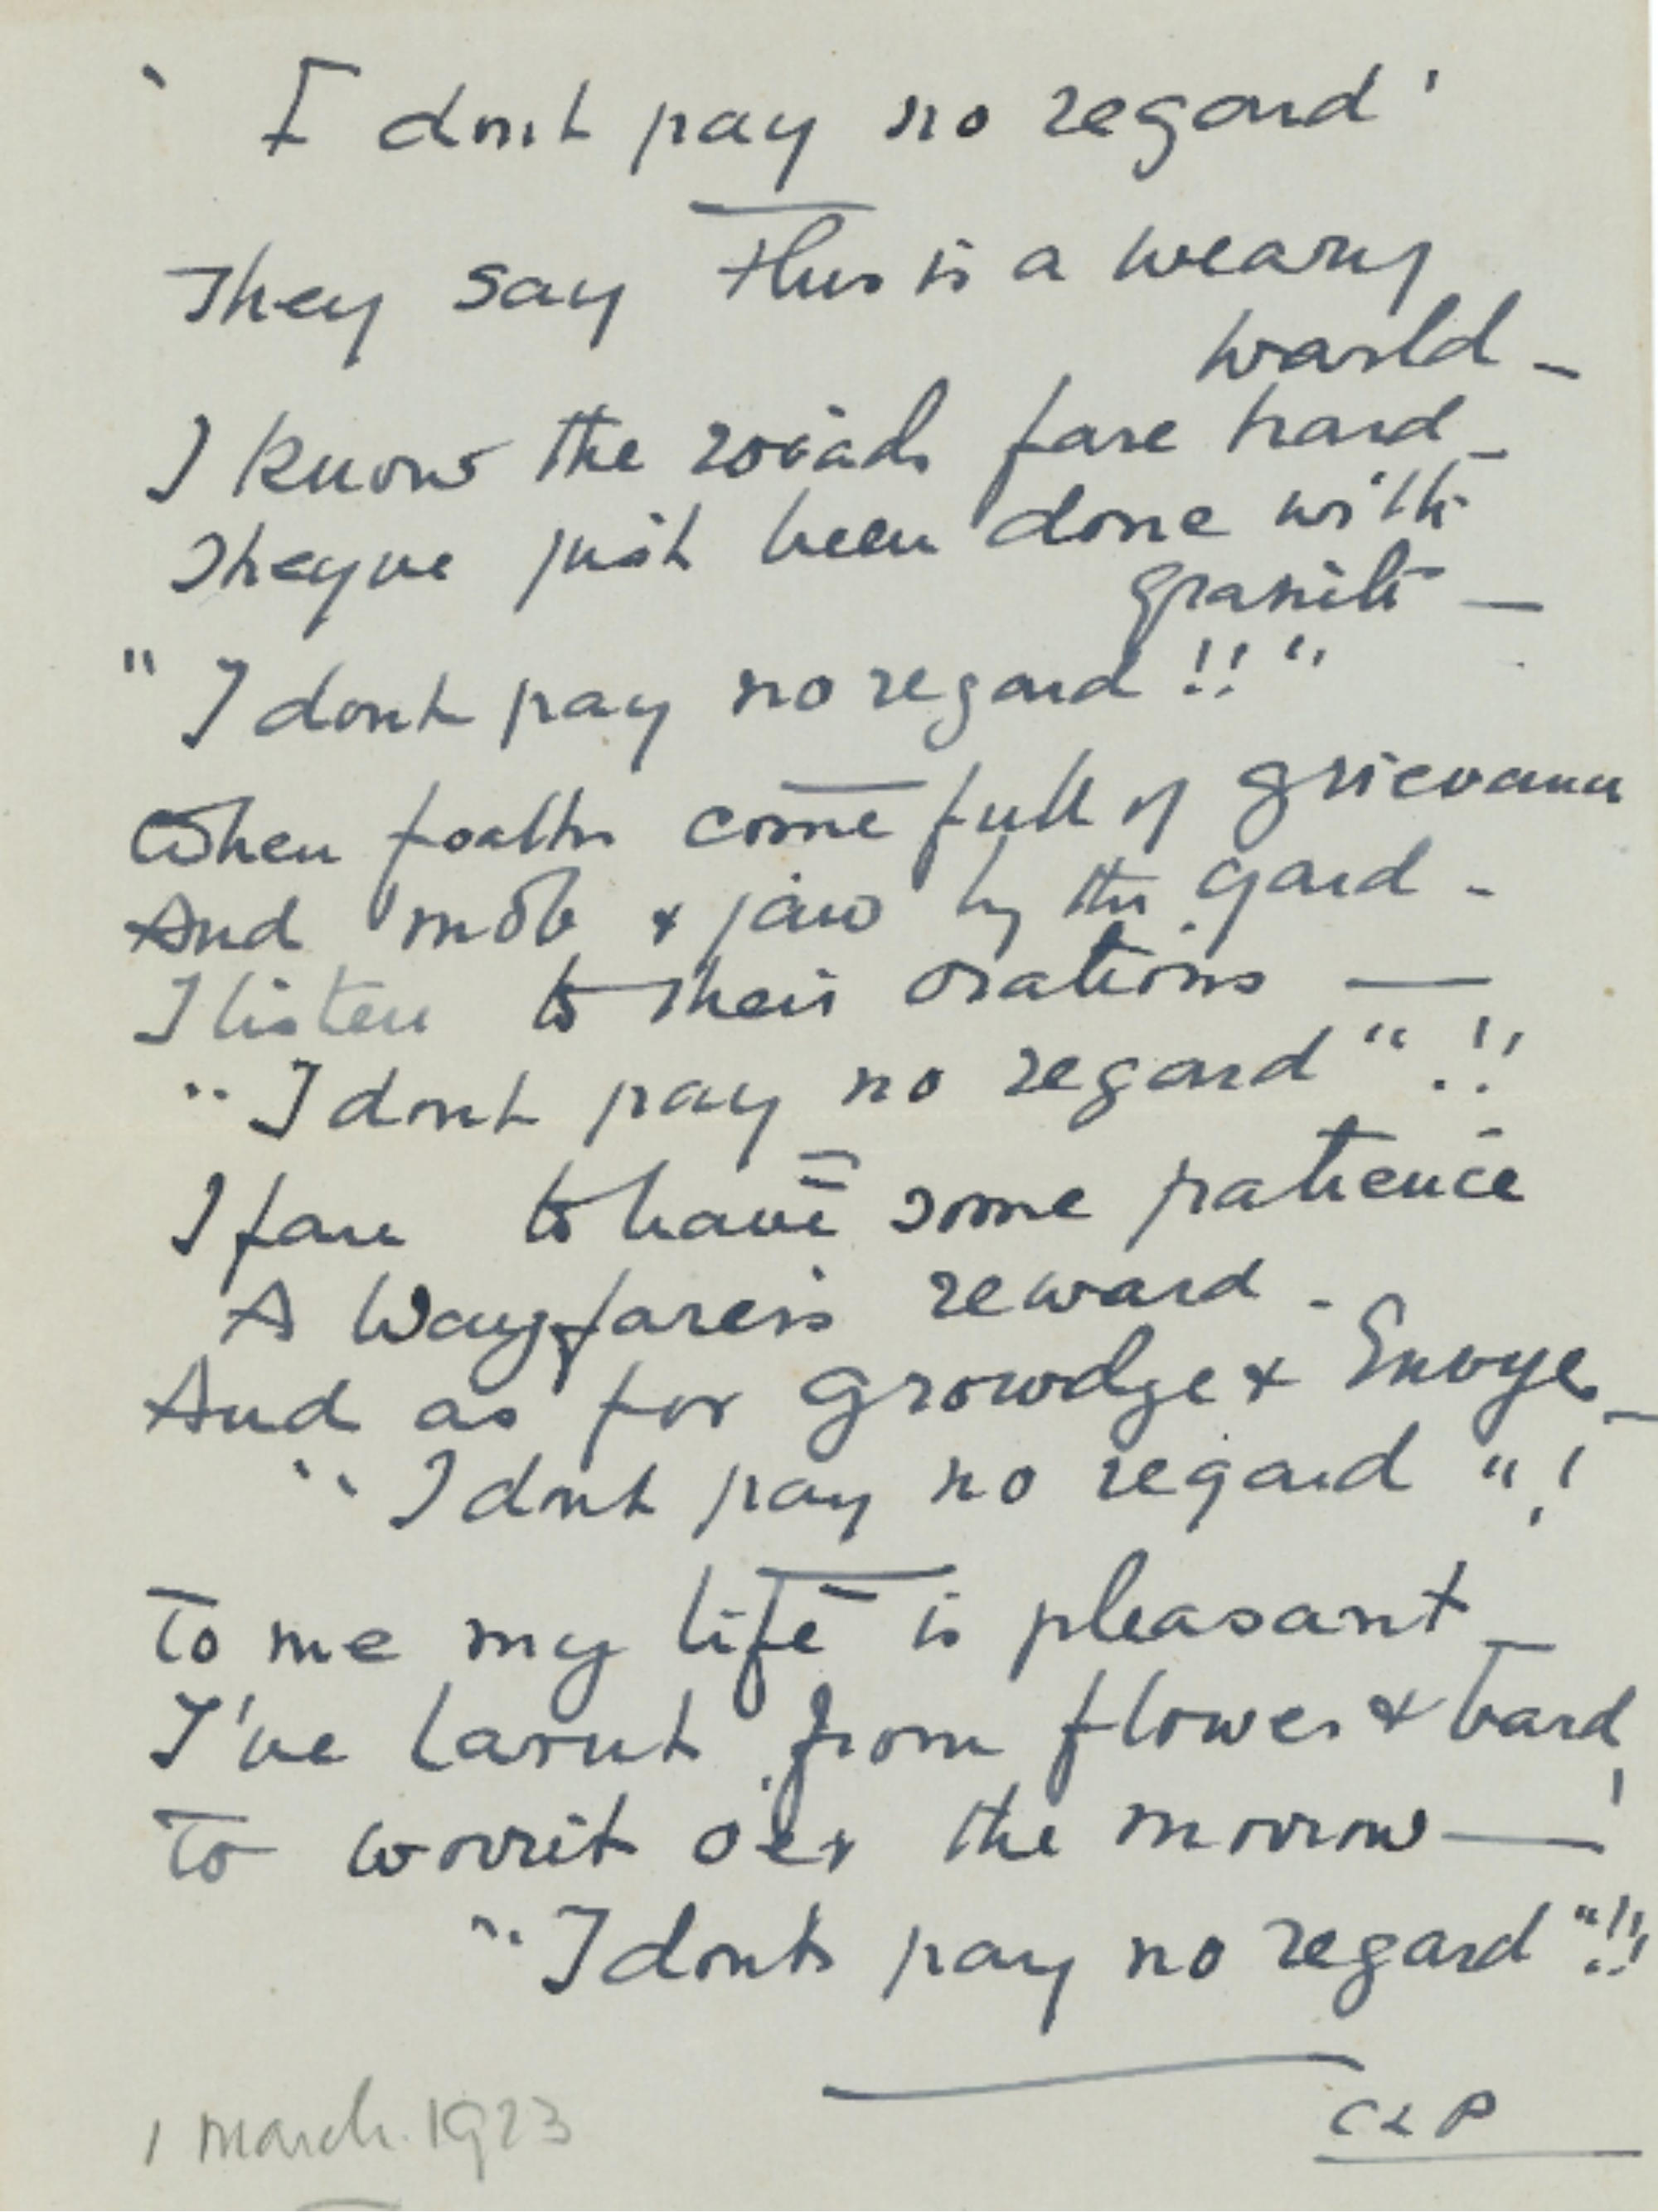 ' I dont pay no regard '
They say this is a weary
warld -
I know the roöads fare hard -
Theyve just been done with
granite —
" I dont pay no regard !! "
When foalks come full of grievance
And mob & jaw by the yard -
I listen to their orations —
" I dont pay no regard " !!
I fare to have some patience
A Wayfarers reward -
And as for Growdge & Envye -
" I dont pay no regard " !
To me my life is pleasant -
I've larnt from flower & bard,
To worrit o'er the morrow — !
" I dont pay no regard " !!
CLP
1 March. 1923